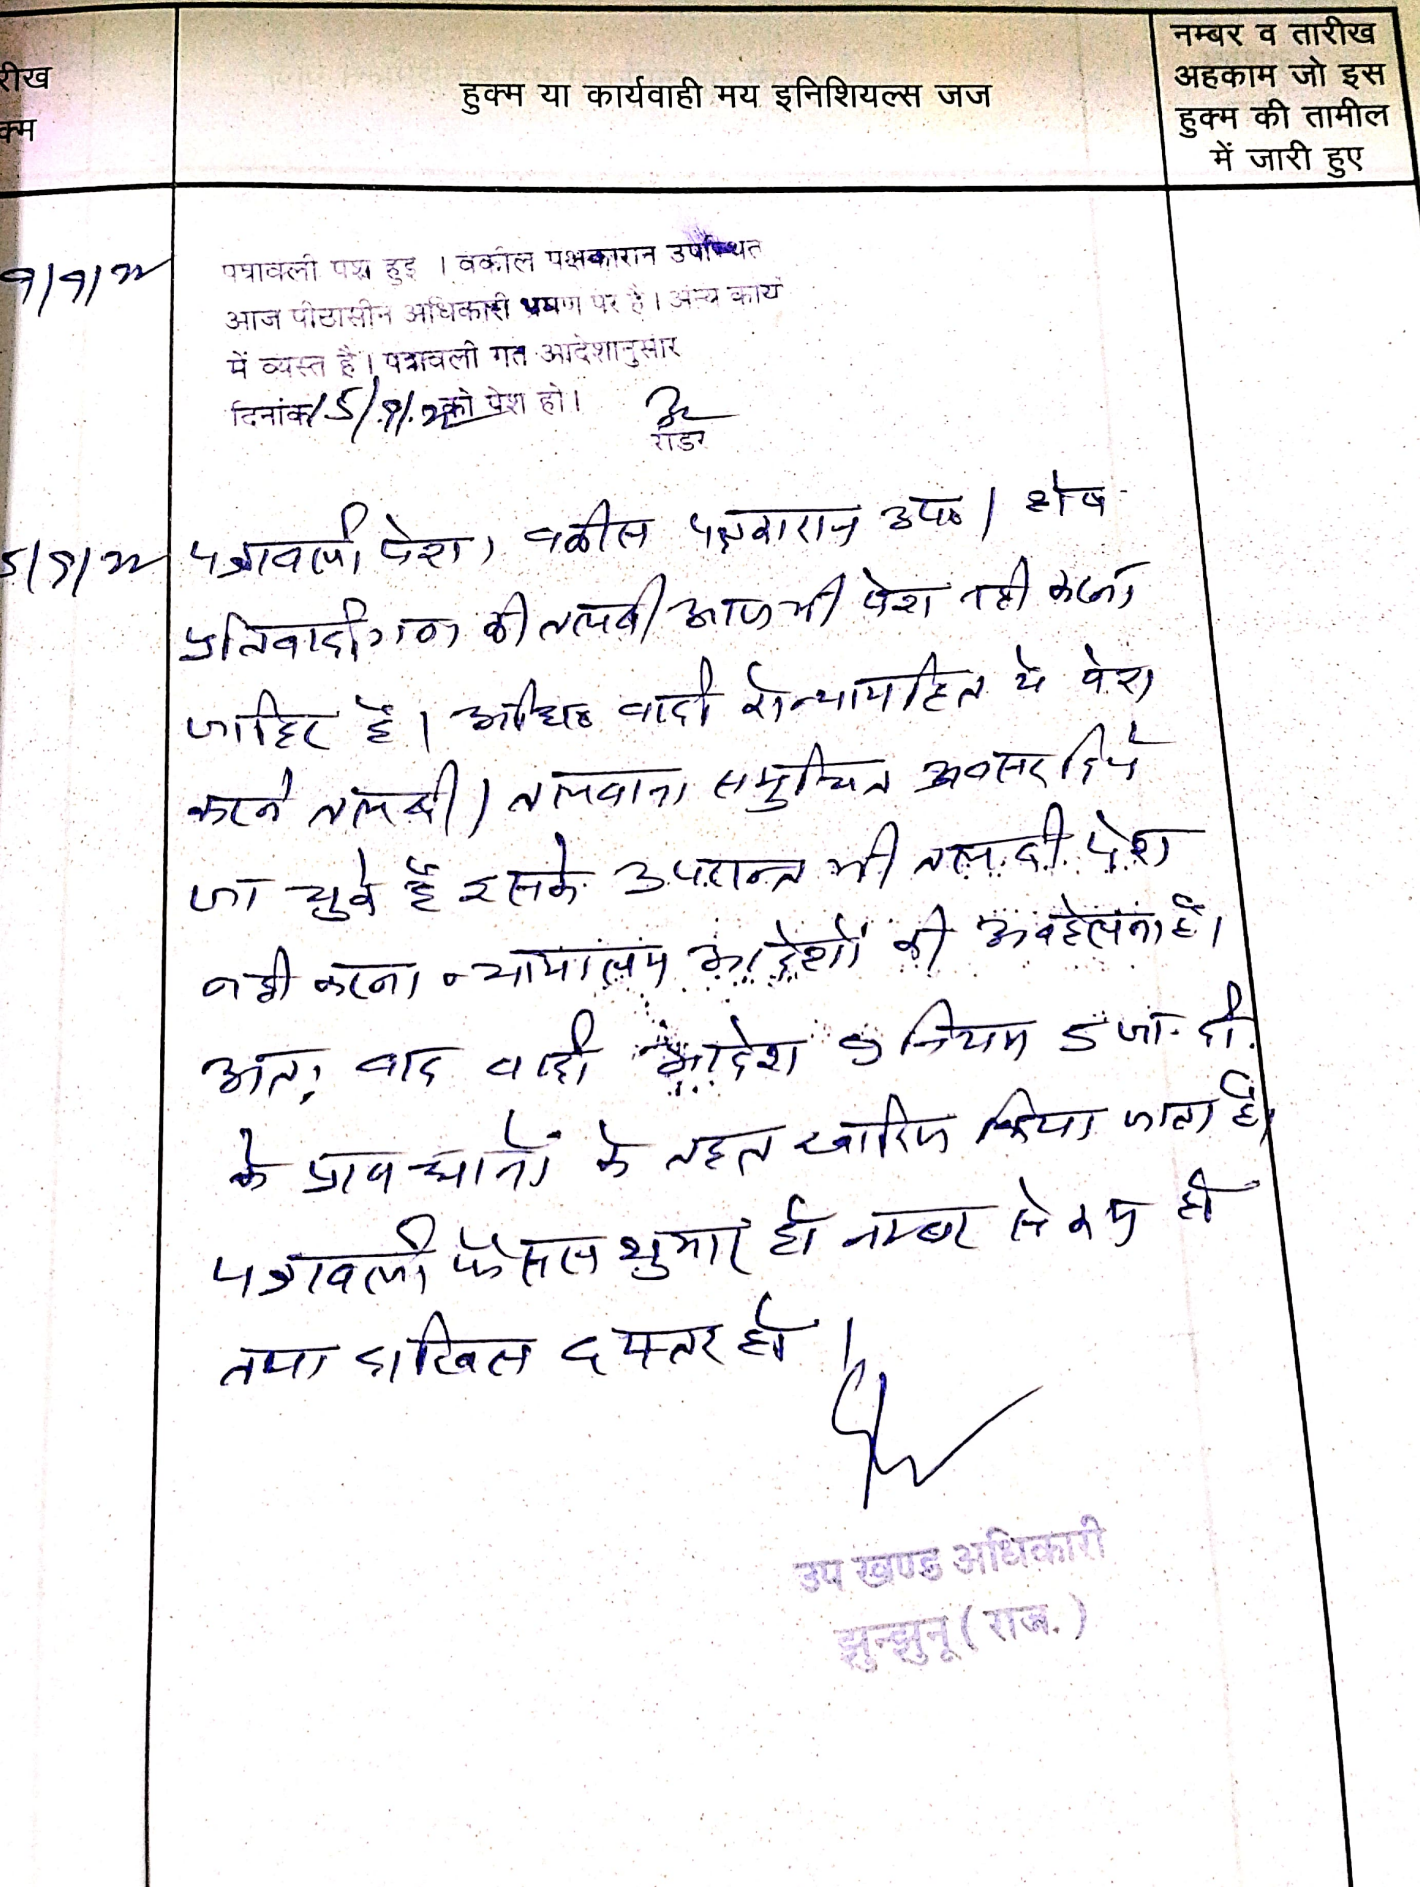 रीख
क्म
हुक्म या कार्यवाही मय इनिशियल्स जज
नम्बर व तारीख
अहकाम जो इस
हुक्म की तामील
में जारी हुए
9/9/22
पत्रावली पेश हुई । वकील पक्षकारान उपस्थित
आज पीठासीन अधिकारी भ्रमण पर है। अन्य कार्य
में व्यस्त है। पत्रावली गत आदेशानुसार
दिनांक 15/9/22 को पेश हो।
रीडर
5/9/22
पत्रावली पेश, वकील पक्षकारान उप० । शेष
प्रतिवादीगण की तलबी आज भी पेश नहीं करना
जाहिर है। अधि० वादी को न्यायहित में पेश
करने तलबी / तलवाना समुचित अवसर दिये
जा चुके है इसके उपरान्त भी तलबी पेश
नही करना न्यायालय आदेशों की अवहेलना है।
अतः वाद वादी आदेश 9 नियम 5 जा. दी.
के प्रावधानों के तहत खारिज किया जाता है।
पत्रावली फैसल शुमार हो नम्बर से कम हो
तथा दाखिल दफ्तर हो ।
उप खण्ड अधिकारी
झुन्झुनू ( राज. )